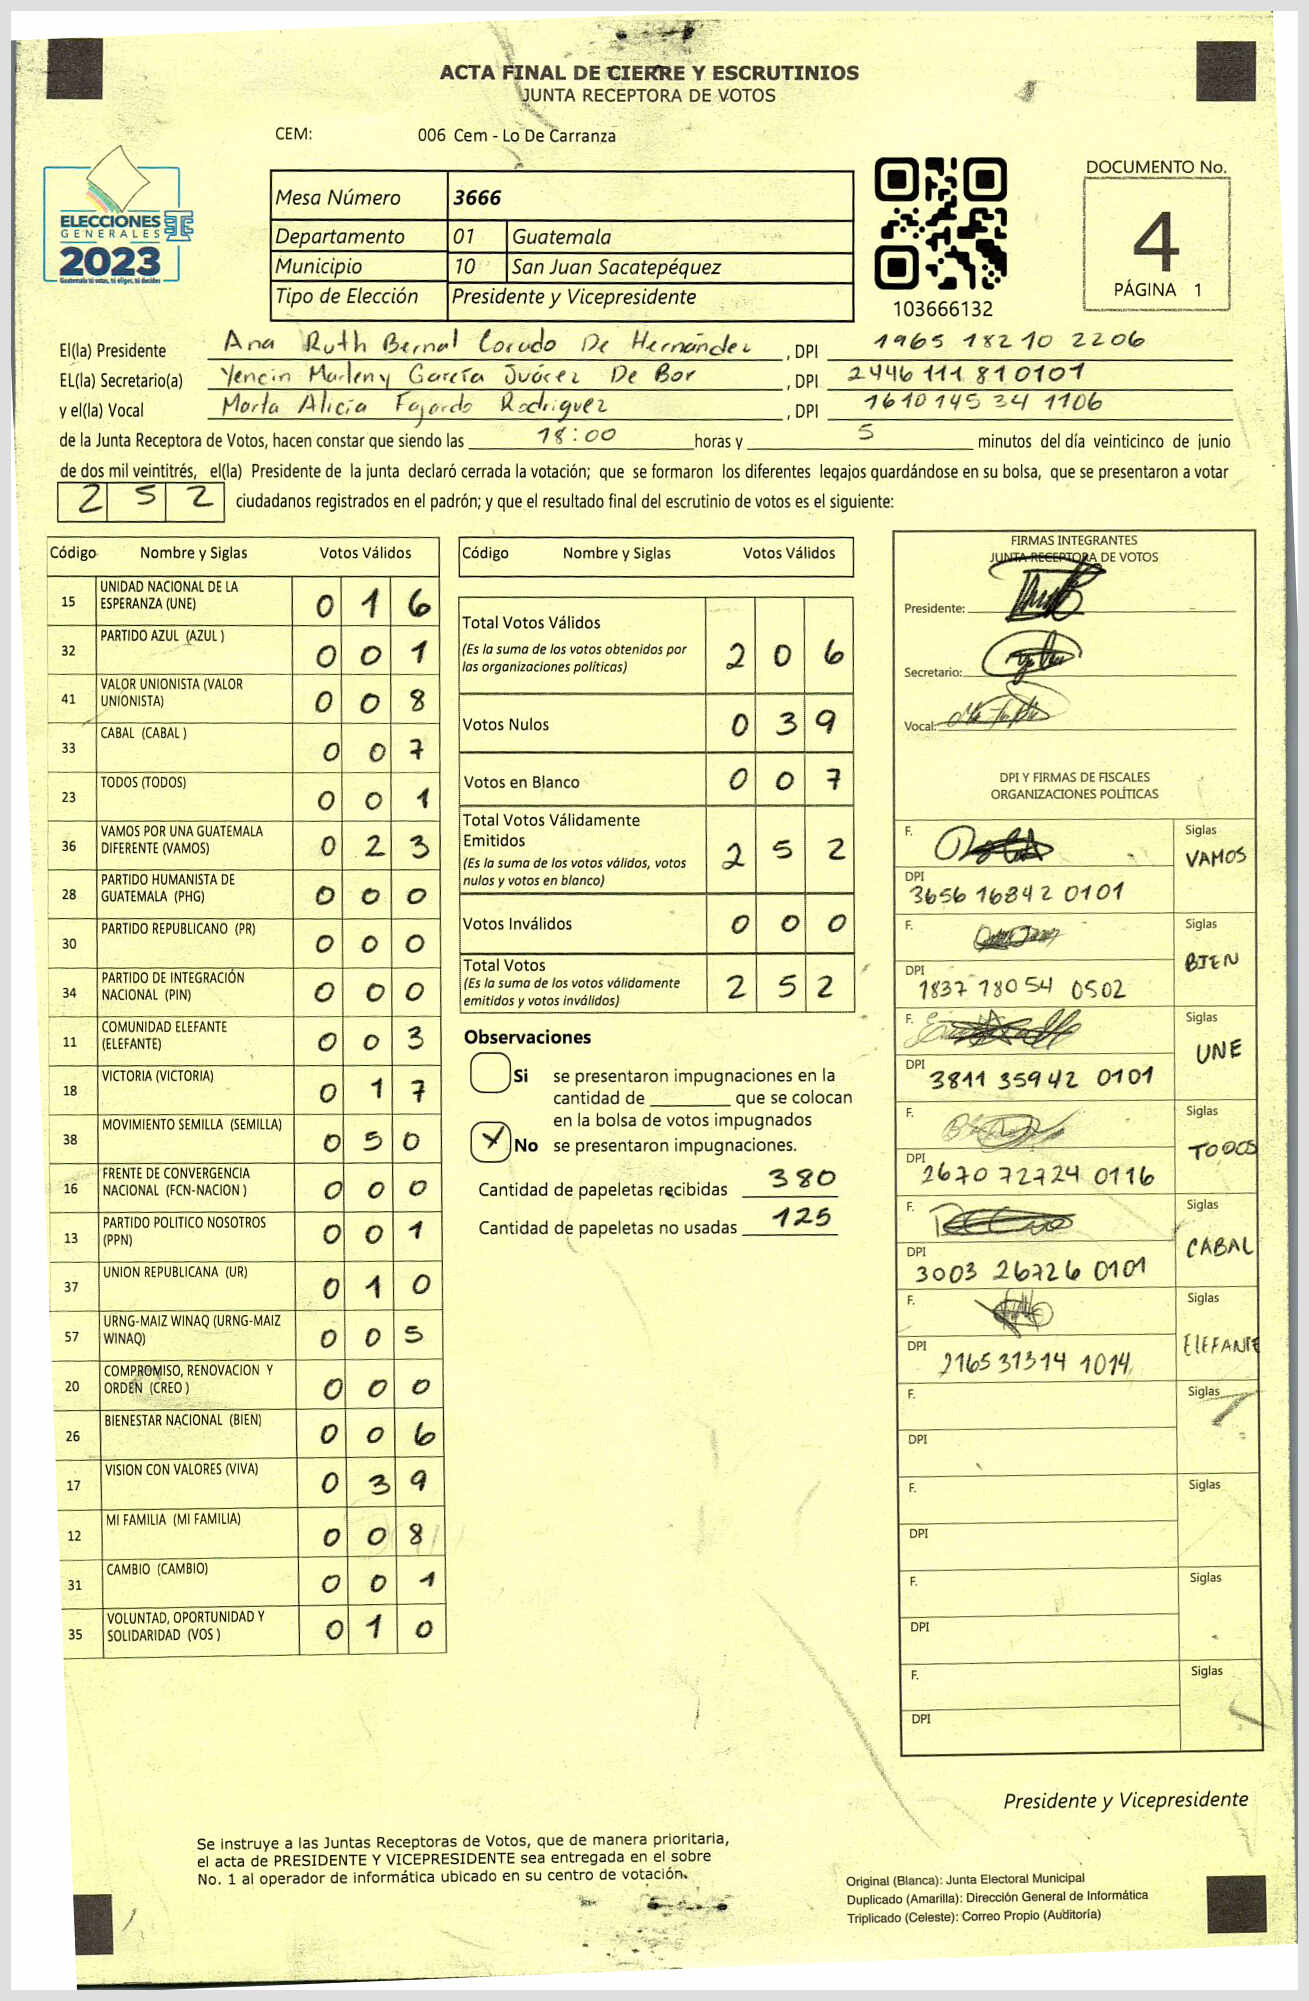 ACTA FINAL DE CIERRE Y ESCRUTINIOS
JUNTA RECEPTORA DE VOTOS
CEM: 006 Cem - Lo De Carranza
ELECCIONES
GENERALES
2023
Guatemala tú votas, tú eliges, tú decides
Mesa Número 3666
Departamento 01 Guatemala
Municipio 10 San Juan Sacatepéquez
Tipo de Elección Presidente y Vicepresidente
103666132
DOCUMENTO No.
4
PÁGINA 1
El(la) Presidente Ana Ruth Bernal Corudo De Hernández , DPI 1965 18210 2206
EL(la) Secretario(a) Yencin Marleny García Juárez De Bor , DPI 2446 111 81 0101
y el(la) Vocal Marta Alicia Fajardo Rodriguez , DPI 1610 145 34 1106
de la Junta Receptora de Votos, hacen constar que siendo las 18:00 horas y 5 minutos del día veinticinco de junio
de dos mil veintitrés, el(la) Presidente de la junta declaró cerrada la votación; que se formaron los diferentes legajos guardándose en su bolsa, que se presentaron a votar
252 ciudadanos registrados en el padrón; y que el resultado final del escrutinio de votos es el siguiente:
Código Nombre y Siglas Votos Válidos
15 UNIDAD NACIONAL DE LA ESPERANZA (UNE) 0 1 6
32 PARTIDO AZUL (AZUL ) 0 0 1
41 VALOR UNIONISTA (VALOR UNIONISTA) 0 0 8
33 CABAL (CABAL ) 0 0 7
23 TODOS (TODOS) 0 0 1
36 VAMOS POR UNA GUATEMALA DIFERENTE (VAMOS) 0 2 3
28 PARTIDO HUMANISTA DE GUATEMALA (PHG) 0 0 0
30 PARTIDO REPUBLICANO (PR) 0 0 0
34 PARTIDO DE INTEGRACIÓN NACIONAL (PIN) 0 0 0
11 COMUNIDAD ELEFANTE (ELEFANTE) 0 0 3
18 VICTORIA (VICTORIA) 0 1 7
38 MOVIMIENTO SEMILLA (SEMILLA) 0 5 0
16 FRENTE DE CONVERGENCIA NACIONAL (FCN-NACION ) 0 0 0
13 PARTIDO POLITICO NOSOTROS (PPN) 0 0 1
37 UNION REPUBLICANA (UR) 0 1 0
57 URNG-MAIZ WINAQ (URNG-MAIZ WINAQ) 0 0 5
20 COMPROMISO, RENOVACION Y ORDEN (CREO ) 0 0 0
26 BIENESTAR NACIONAL (BIEN) 0 0 6
17 VISION CON VALORES (VIVA) 0 3 9
12 MI FAMILIA (MI FAMILIA) 0 0 8
31 CAMBIO (CAMBIO) 0 0 1
35 VOLUNTAD, OPORTUNIDAD Y SOLIDARIDAD (VOS ) 0 1 0
Código Nombre y Siglas Votos Válidos
Total Votos Válidos 2 0 6
(Es la suma de los votos obtenidos por
las organizaciones políticas)
Votos Nulos 0 3 9
Votos en Blanco 0 0 7
Total Votos Válidamente
Emitidos 2 5 2
(Es la suma de los votos válidos, votos
nulos y votos en blanco)
Votos Inválidos 0 0 0
Total Votos 2 5 2
(Es la suma de los votos válidamente
emitidos y votos inválidos)
Observaciones
Si se presentaron impugnaciones en la
cantidad de ________ que se colocan
en la bolsa de votos impugnados
X No se presentaron impugnaciones.
Cantidad de papeletas recibidas 380
Cantidad de papeletas no usadas 125
FIRMAS INTEGRANTES
JUNTA RECEPTORA DE VOTOS
Presidente:
Secretario:
Vocal:
DPI Y FIRMAS DE FISCALES
ORGANIZACIONES POLÍTICAS
F. Siglas VAMOS
DPI 3656 16842 0101
F. Siglas BIEN
DPI 1837 78054 0502
F. Siglas UNE
DPI 3811 35942 0101
F. Siglas TODOS
DPI 2670 72724 0116
F. Siglas CABAL
DPI 3003 26726 0101
F. Siglas ELEFANTE
DPI 2165 31314 1014
F. Siglas
DPI
F. Siglas
DPI
F. Siglas
DPI
F. Siglas
DPI
Presidente y Vicepresidente
Se instruye a las Juntas Receptoras de Votos, que de manera prioritaria,
el acta de PRESIDENTE Y VICEPRESIDENTE sea entregada en el sobre
No. 1 al operador de informática ubicado en su centro de votación.
Original (Blanca): Junta Electoral Municipal
Duplicado (Amarilla): Dirección General de Informática
Triplicado (Celeste): Correo Propio (Auditoría)